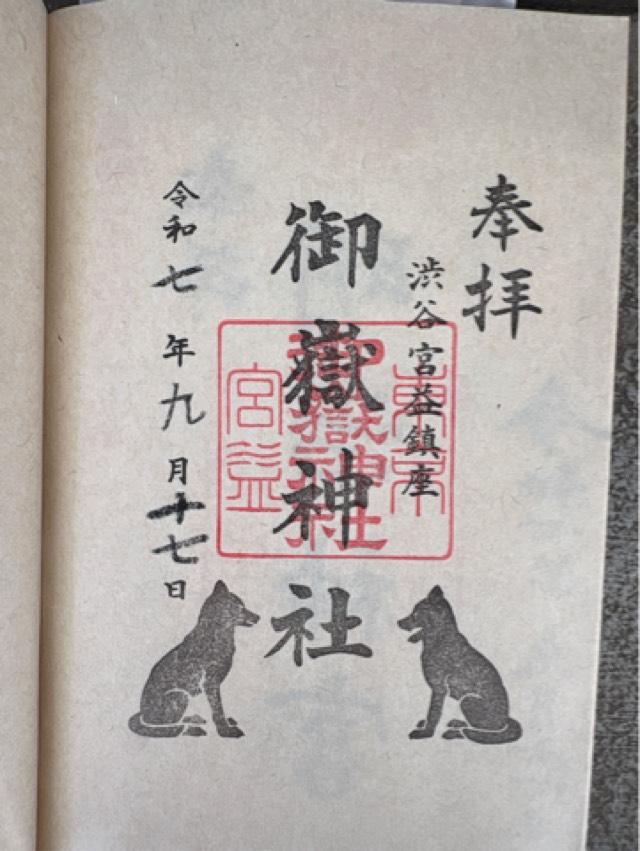 奉拝
渋谷宮益鎮座
御嶽神社
東京
御嶽神社
宮益
令和七年九月十七日